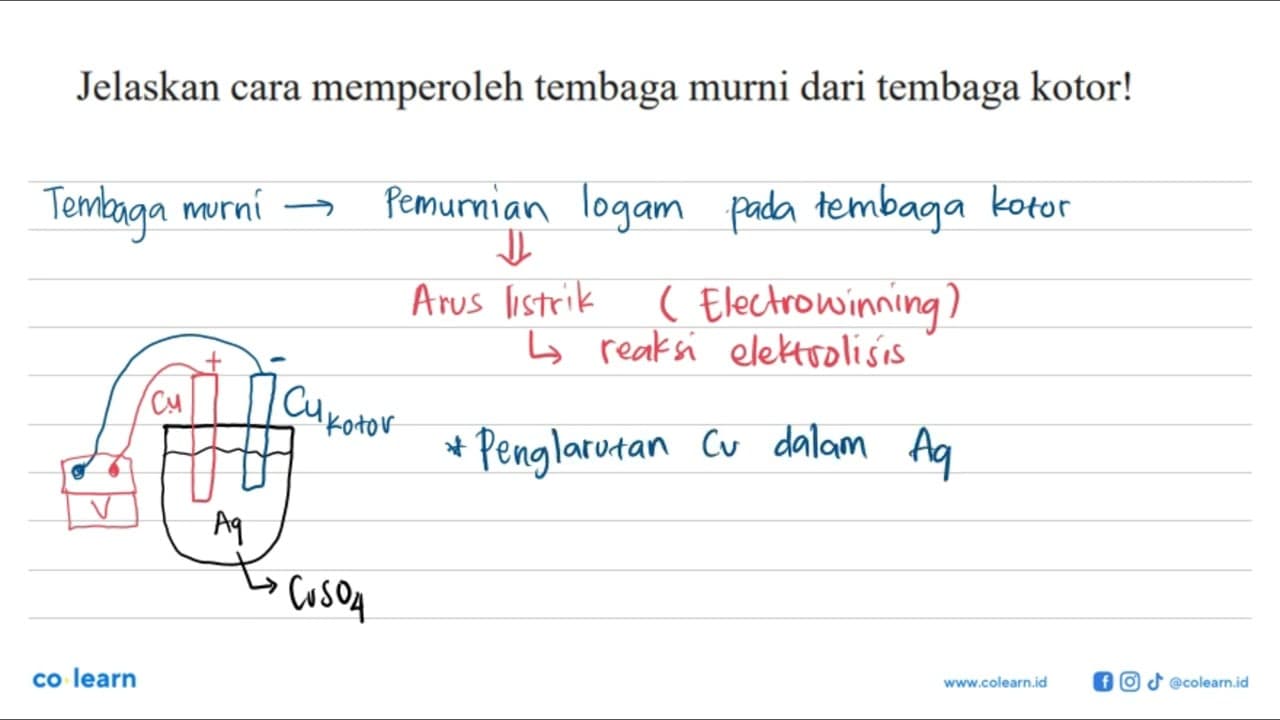 Jelaskan cara memperoleh tembaga murni dari tembaga kotor!
Tembaga murni → Pemurnian logam pada tembaga kotor
⇓
Arus listrik ( Electrowinning)
↳ reaksi elektrolisis
+ -
Cu Cu kotor
* Penglarutan Cu dalam Aq
V
Aq
→ CuSO4
co learn
www.colearn.id @colearn.id